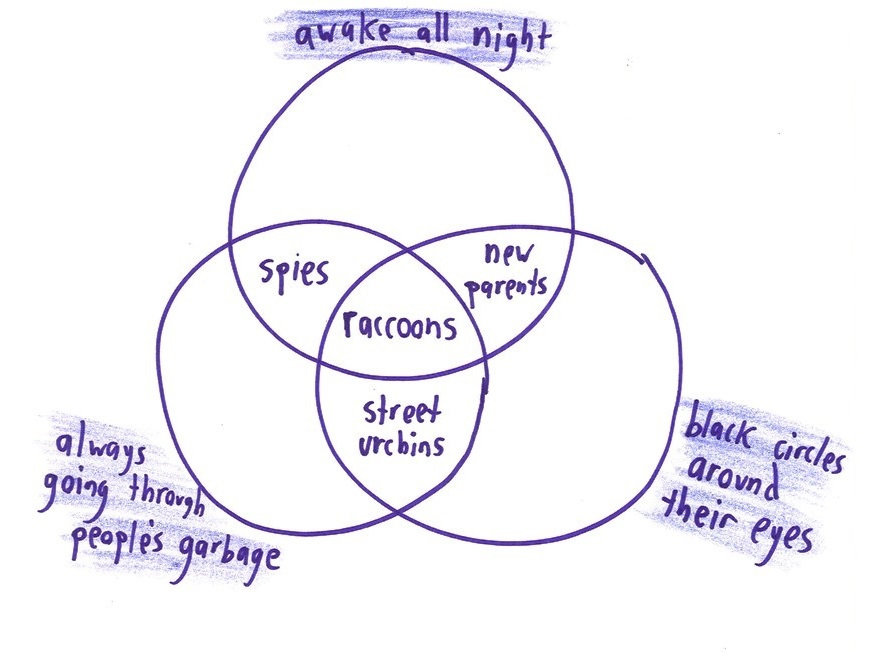 awake all night
spies
new
parents
raccoons
street
urchins
always
going through
people's garbage
black circles
around
their eyes